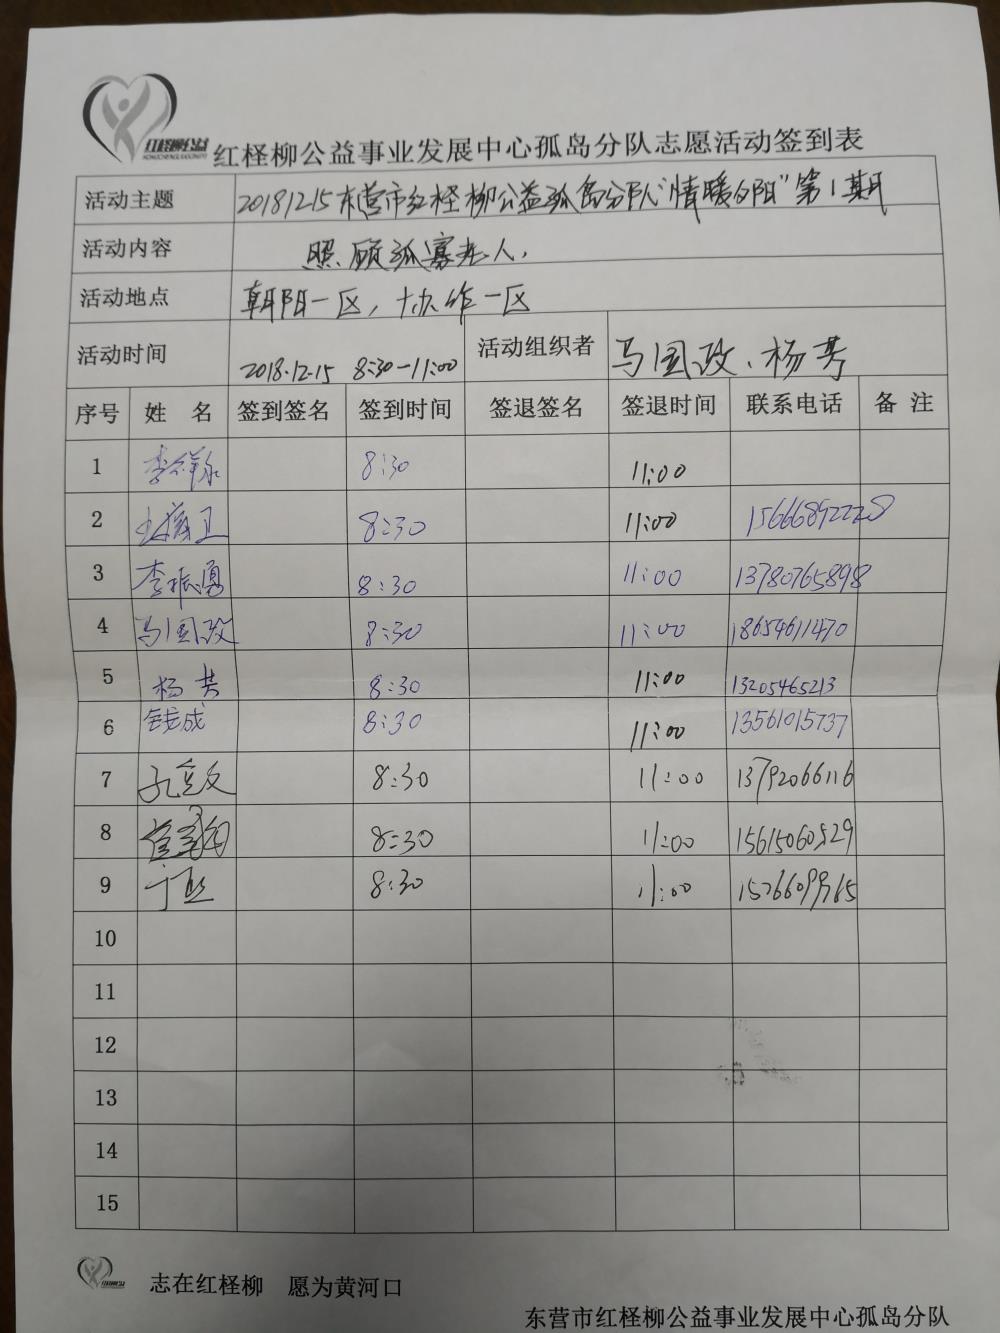 红柽柳公益
红柽柳公益事业发展中心孤岛分队志愿活动签到表
活动主题 20181215东营市红柽柳公益孤岛分队"情暖夕阳"第1期
活动内容 照顾孤寡老人,
活动地点 朝阳一区, 协作一区
活动时间 2018.12.15 8:30-11:00 活动组织者 马国政、杨芳
序号 姓 名 签到签名 签到时间 签退签名 签退时间 联系电话 备 注
1 8:30 11:00
2 8:30 11:00 15666892228
3 李振勇 8:30 11:00 13780765898
4 马国政 8:30 11:00 18654611470
5 杨芳 8:30 11:00 13205465213
6 钱成 8:30 11:00 13561015737
7 8:30 11:00 13792066116
8 8:30 11:00 15615060529
9 8:30 11:00
10
11
12
13
14
15
志在红柽柳 愿为黄河口
东营市红柽柳公益事业发展中心孤岛分队